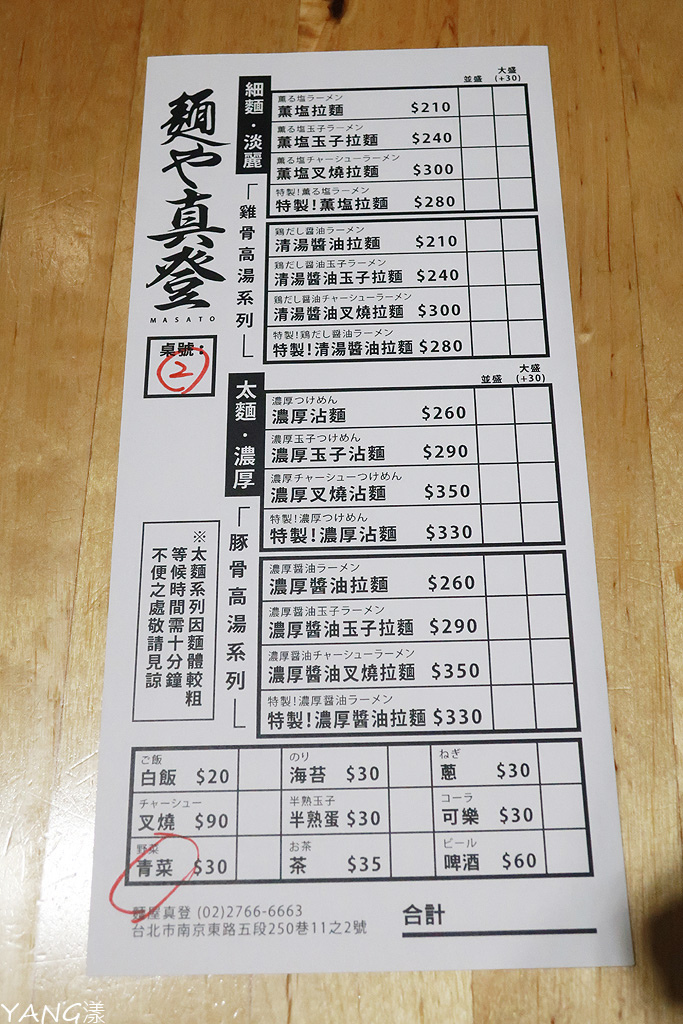 麺や真登
MASATO
桌號：
2
細麵・淡麗
「雞骨高湯系列」
並盛
大盛
(+30)
薫る塩ラーメン
薰塩拉麵 $210
薫る塩玉子ラーメン
薰塩玉子拉麵 $240
薫る塩チャーシューラーメン
薰塩叉燒拉麵 $300
特製！薫る塩ラーメン
特製！薰塩拉麵 $280
鶏だし醤油ラーメン
清湯醬油拉麵 $210
鶏だし醤油玉子ラーメン
清湯醬油玉子拉麵 $240
鶏だし醤油チャーシューラーメン
清湯醬油叉燒拉麵 $300
特製！鶏だし醤油ラーメン
特製！清湯醬油拉麵 $280
太麵・濃厚
「豚骨高湯系列」
並盛
大盛
(+30)
濃厚つけめん
濃厚沾麵 $260
濃厚玉子つけめん
濃厚玉子沾麵 $290
濃厚チャーシューつけめん
濃厚叉燒沾麵 $350
特製！濃厚つけめん
特製！濃厚沾麵 $330
濃厚醤油ラーメン
濃厚醬油拉麵 $260
濃厚醤油玉子ラーメン
濃厚醬油玉子拉麵 $290
濃厚醤油チャーシューラーメン
濃厚醬油叉燒拉麵 $350
特製！濃厚醤油ラーメン
特製！濃厚醬油拉麵 $330
※太麵系列因麵體較粗
等候時間需十分鐘
不便之處敬請見諒
ご飯
白飯 $20
のり
海苔 $30
ねぎ
蔥 $30
チャーシュー
叉燒 $90
半熟玉子
半熟蛋 $30
コーラ
可樂 $30
野菜
青菜 $30
お茶
茶 $35
ビール
啤酒 $60
麵屋真登 (02)2766-6663
台北市南京東路五段250巷11之2號
合計
YANG漾